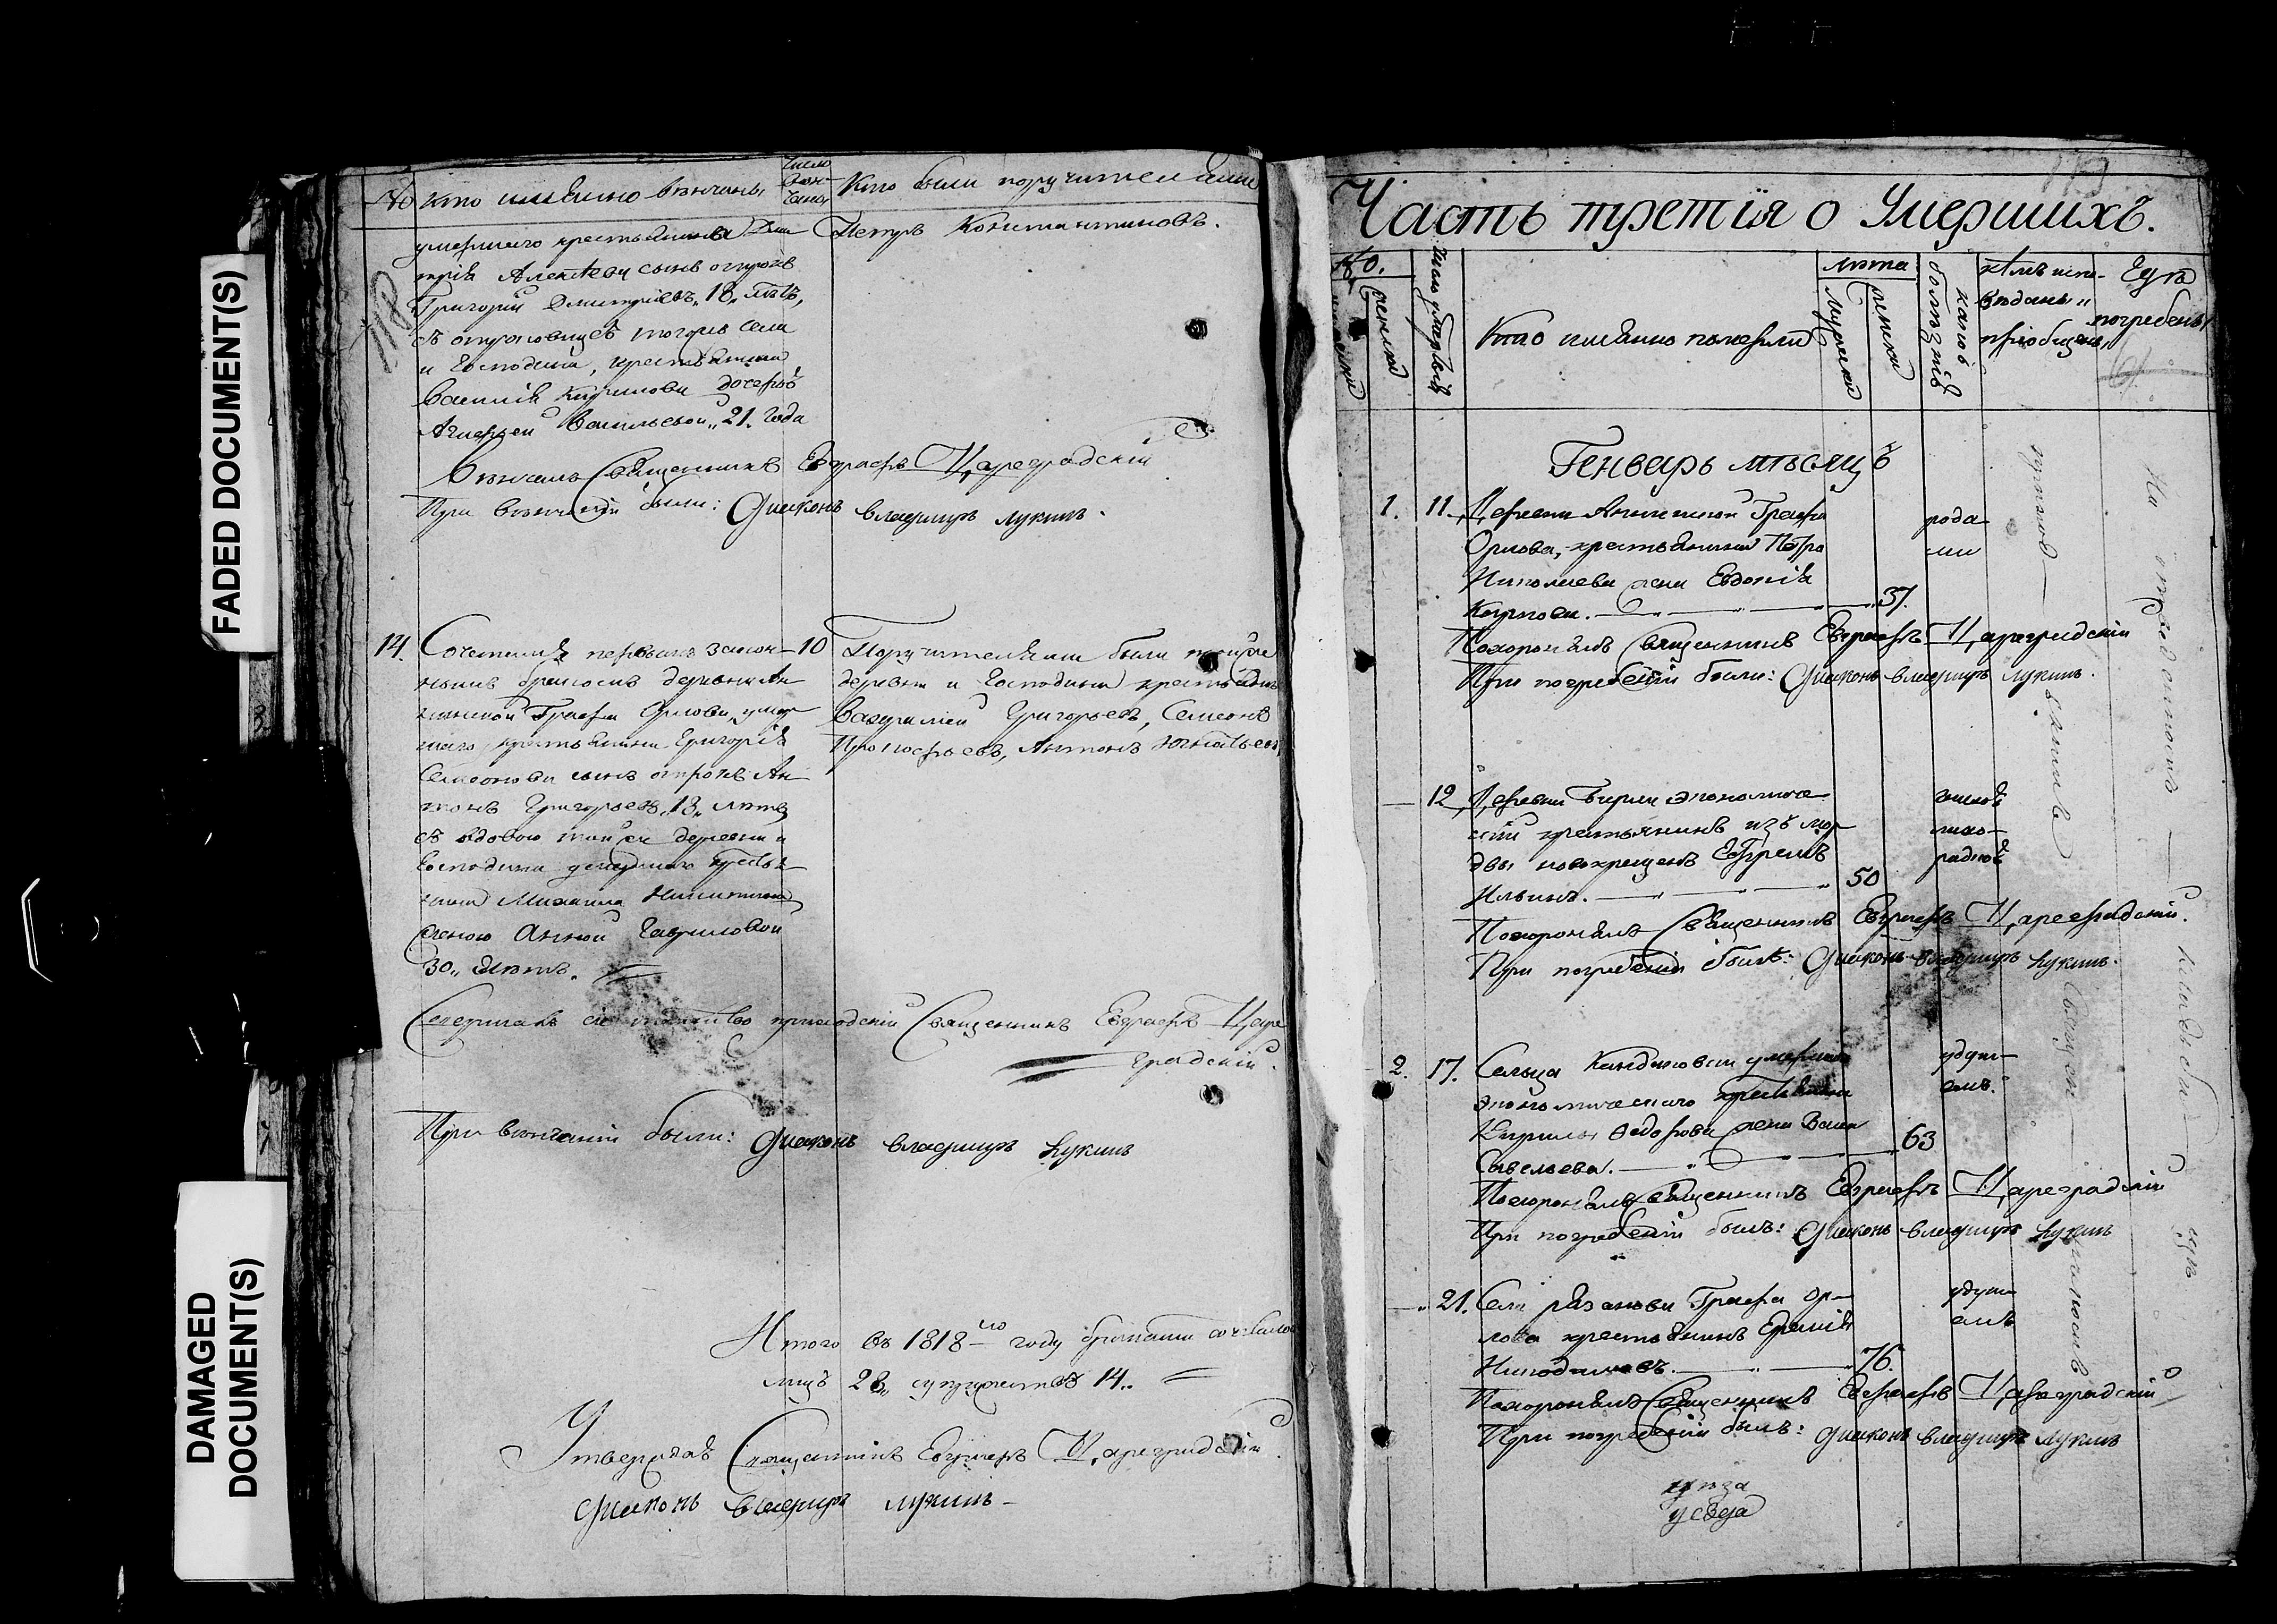 FADED DOCUMENT(S)
DAMAGED
DOCUMENT(S)
118
№ кто имянно венчаны
число
Кто были поручителями
умершаго крестьянина Дми
трія Алексѣева сынъ отрокъ
Григорій Дмитріевъ, 18, лѣтъ,
съ отроковицею тогожъ села
и Господина, крестьянина
Василія Кирилова дочерью
Васильевой, 21. года
Петръ Константиновъ.
Венчалъ Священникъ Евграфъ Цареградскій
При венчаніи были: Діаконъ Владимиръ Лукинъ.
14.
Сочетался первымъ закон-
нымъ бракомъ деревни Ан
ненской Графа Орлова, умер
шаго крестьянина Григорія
Семенова сынъ отрокъ Ан
тонъ Григорьевъ, 18, лѣтъ
съ вдовою тойже деревни и
Господина умершаго крестья
нина Михаила Никитина
женою Анною Гавриловой
30, лѣтъ.
10
Поручителями были тойже
деревни и Господина крестьяне
Григорьевъ, Семенъ
Прокофьевъ, Антонъ Игнатьевъ
Священникъ Евграфъ Царе
градскій.
При венчаніи были: Діаконъ Владимиръ Лукинъ
Итого въ 1818-мъ году браками сочеталось
лицъ 28, супружествъ 14.
Утверждаю Священникъ Евграфъ Цареградскій
Діаконъ Владимиръ Лукинъ
Часть третія о Умершихъ.
№.
женской
число умертвій
Кто имянно померли
лѣта
мужеской
женской
какою
болезнію
кѣмъ испо-
вѣданы и
пріобщены
Гдѣ
погребены
Генварь мѣсяцъ
1.
11.
Деревни Анненской Графа
Орлова, крестьянина Петра
Николаева жена Евдокія
Карпова.
37.
рода
ми
Похоронялъ Священникъ Евграфъ Цареградскій
При погребеніи были: Діаконъ Владимиръ Лукинъ.
12
Деревни экономиче
скій крестьянинъ изъ мор
двы новокрещенъ Ефремъ
Ильинъ.
50
Похоронялъ Священникъ Евграфъ Цареградскій.
При погребеніи былъ: Діаконъ Владимиръ Лукинъ.
2.
17.
Сельца умершаго
экономическаго крестьянина
Кирилы Федорова жена
Савельева.
63
удуш-
емъ.
Похоронялъ Священникъ Евграфъ Цареградскій
При погребеніи былъ: Діаконъ Владимиръ Лукинъ
21.
Села Рязанова Графа Ор-
лова крестьянинъ
Никодимовъ.
76.
удуш-
емъ
Похоронялъ Священникъ Евграфъ Цареградскій
При погребеніи былъ: Діаконъ Владимиръ Лукинъ
На отведенномъ кладбищѣ
приходскимъ Священникомъ